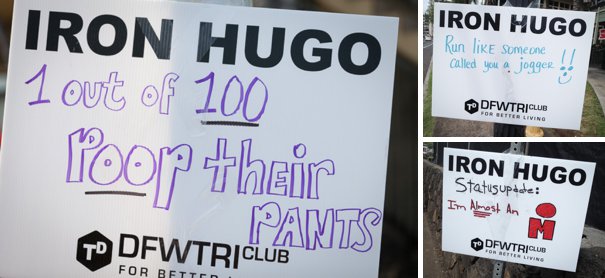 IRON HUGO
1 out of 100
Poop their
PANTS
TD DFWTRI CLUB
FOR BETTER LIVING
IRON HUGO
Run LIKE someone
called you a jogger!!
TD DFWTRI CLUB
FOR BETTER LIVING
IRON HUGO
Status update:
I'm Almost An M
TD DFWTRI CLUB
FOR BETTER LIVING